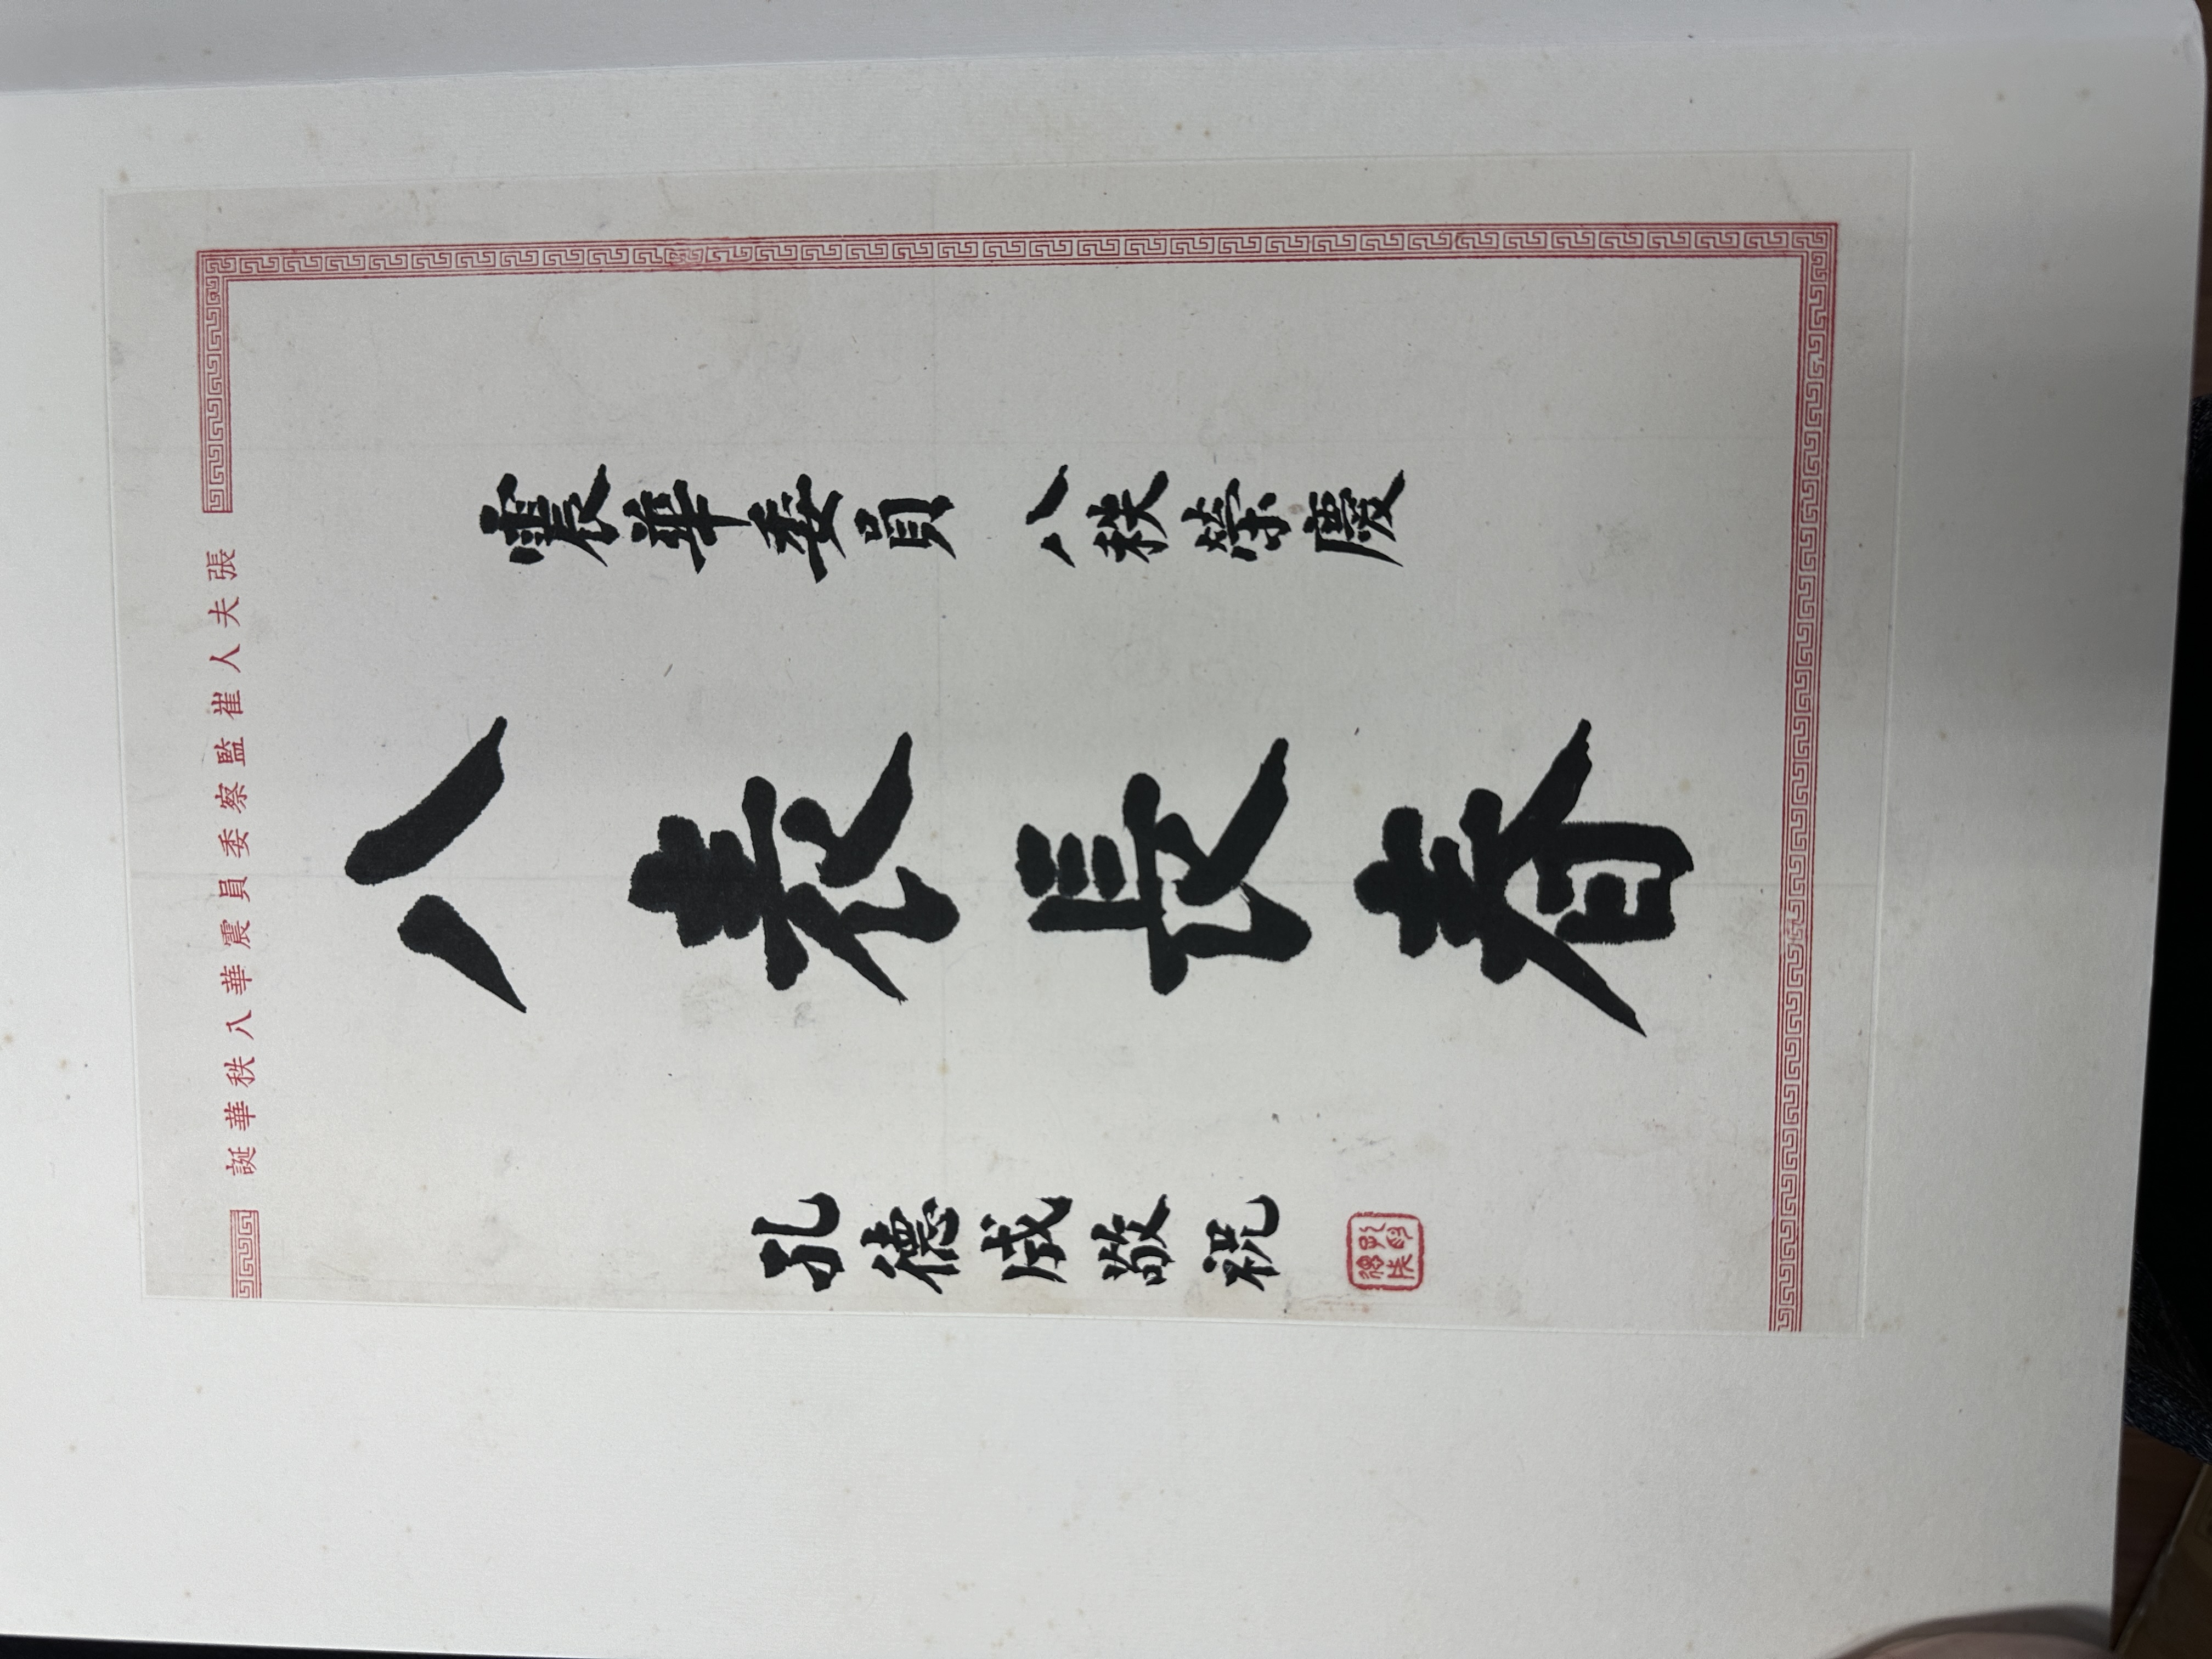 張夫人崔監察委員震華八秩華誕
震華委員 八秩榮慶
八表長春
孔德成敬祝
孔印德成